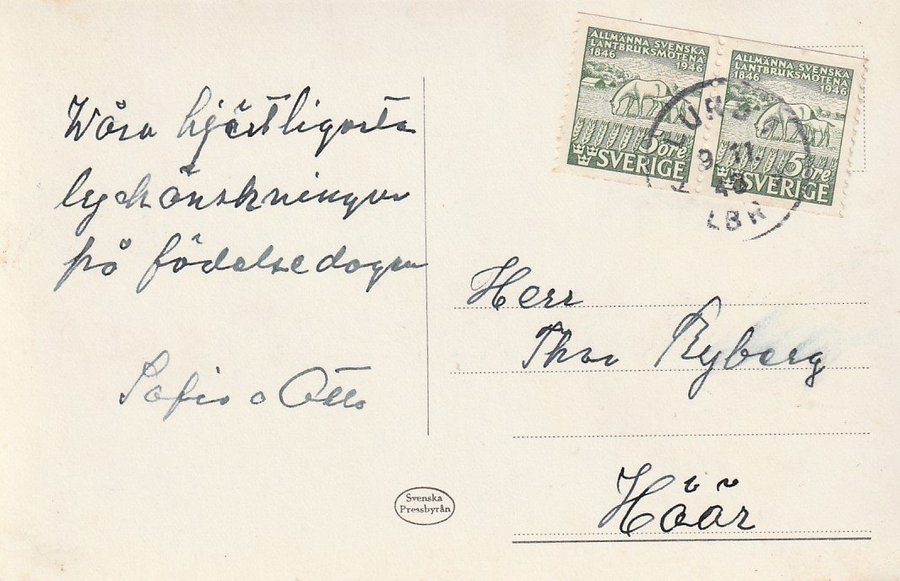 Wåra hjärtligaste
lyckönskningar
på födelsedagen
Sofia o Otto
ALLMÄNNA SVENSKA
LANTBRUKSMÖTENA
1846 1946
5 ÖRE
SVERIGE
ALLMÄNNA SVENSKA
LANTBRUKSMÖTENA
1846 1946
5 ÖRE
SVERIGE
9.11.
LBR
Herr
Thor Ryberg
Höör
Svenska
Pressbyrån